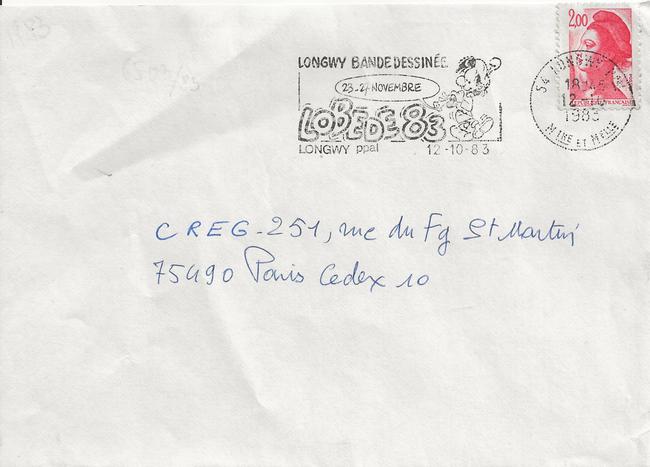 1983
LONGWY BANDE DESSINÉE
23-27 NOVEMBRE
LOBEDE 83
LONGWY ppal 12-10-83
2,00
54 LONGWY
12-10
1983
MTHE ET MELLE
REPUBLIQUE FRANÇAISE
CREG-251, rue du Fg St Martin
75490 Paris Cedex 10